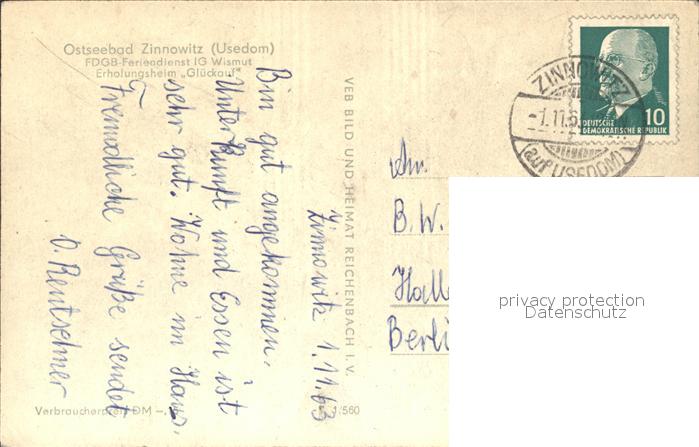 Ostseebad Zinnowitz (Usedom)
FDGB-Feriendienst IG Wismut
Erholungsheim „Glückauf"
Zinnowitz 1.11.63
Bin gut angekommen.
Unterkunft und Essen ist
sehr gut. Wohne im Haus.
Freundliche Grüße sendet
O. Rentschner
VEB BILD UND HEIMAT REICHENBACH I. V.
Verbraucherpreis DM -,
1/560
ZINNOWITZ
-1.11.6
(auf USEDOM)
10
DEUTSCHE
DEMOKRATISCHE REPUBLIK
An
B.W.
Halle
Berli
privacy protection
Datenschutz